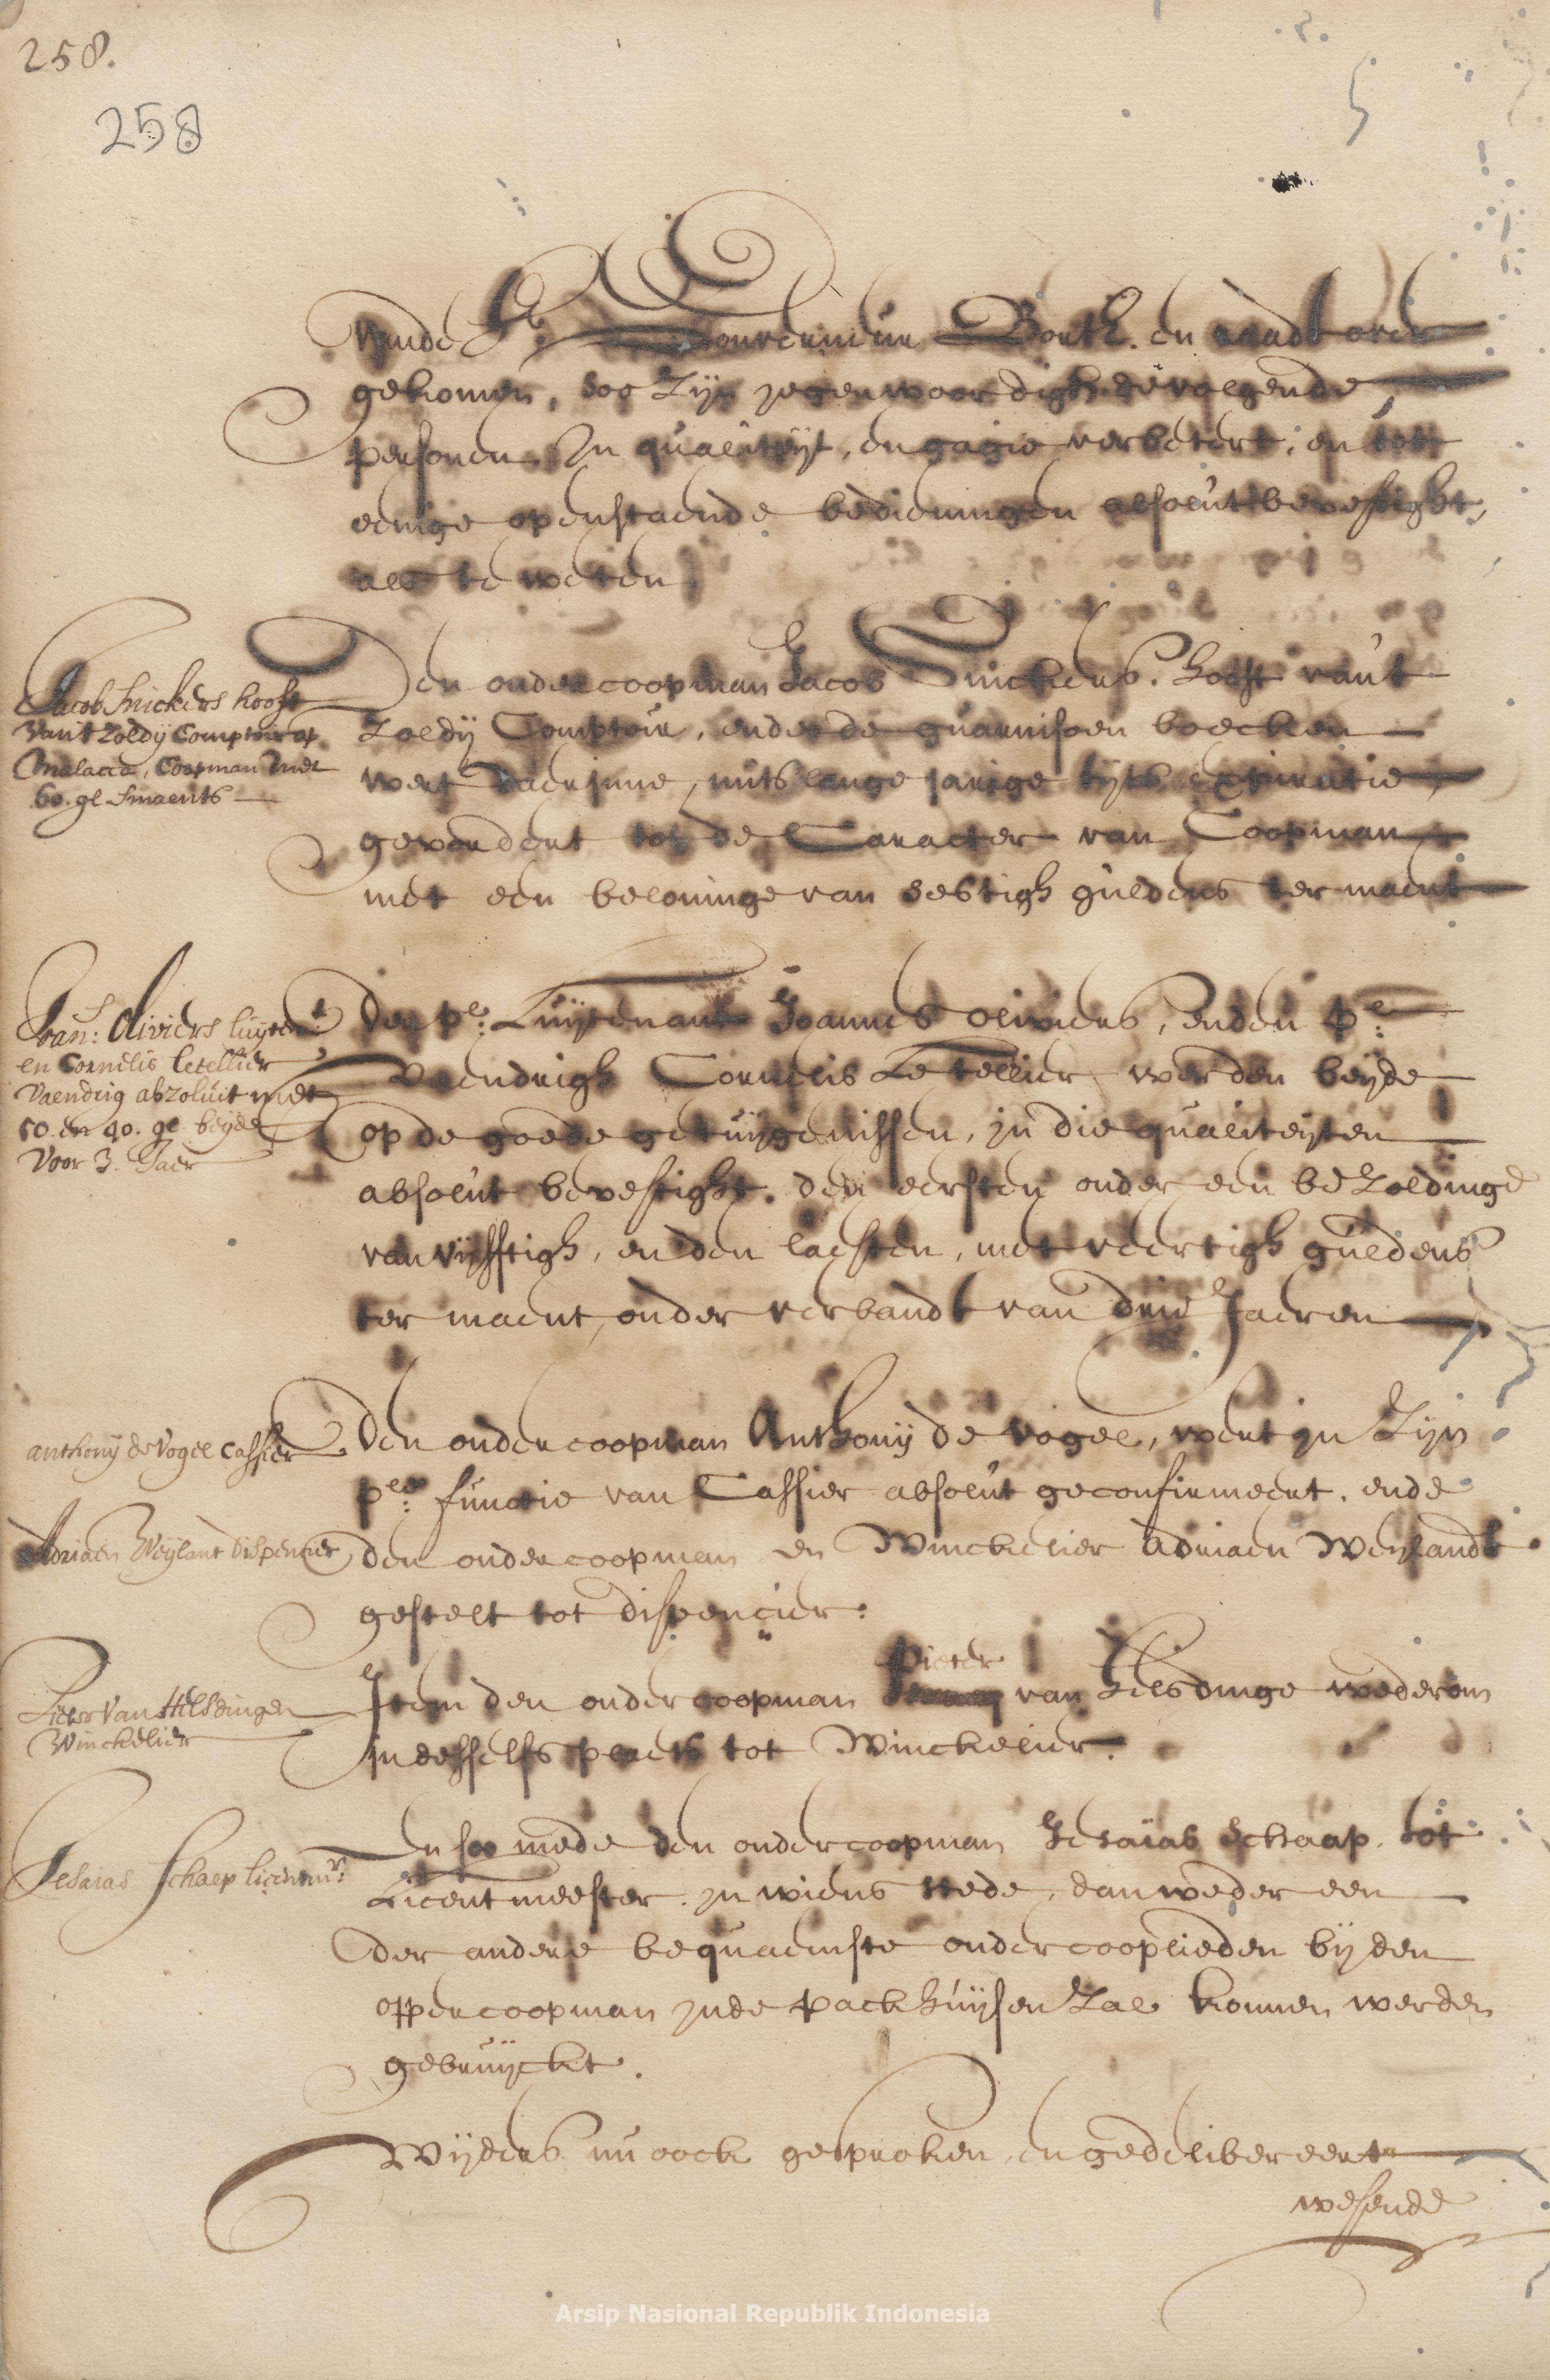 258.
258
vande Hr. Gouverneur Bort. en raadt over
gekomen, soo zijn jegenwoordigh de volgende
persoonen in qualiteijt, en gagie verbetert, en tot
eenige openstaende bedieningen absolut bevestight,
als te weten
Jacob Snickers hooft
Van't Zoldij Comptoir op
Malacca, Coopman met
60. gl Smaents
Den ondercoopman Jacob Snickers. hooft van't
Zoldij Comptoir, ende de guarnisoen boecken
wert daer inne, mits lange jarige tijts expiratie
gevordert tot de Caracter van Coopman
met een beloninge van sestigh guldens ter maent
Joan:s Oliviers luyten:t
en Cornelis letellier
Vaendrig abzoluit met
50. en 40. gl. beijde
Voor 3. Jaer
Den p:le Luijtenant Joannes Oliviers, en den p:le
Vaendrigh Cornelis Le Tellier werden beijde
op de goede getuijgenissen, in die qualiteijten
absolut bevestight. den eersten onder een bezoldinge
van vijfftigh, en den laesten, met veertigh guldens
ter maent, onder verbandt van drie Jaeren
anthonij de Vogel Cassier
Den ondercoopman Anthonij de vogel, wert in zijn
p:le functie van Cassier absolut geconfirmeert. ende
Adriaen Weylant Dispencier
den ondercoopman en Winckelier Adriaen Weylandt
gestelt tot dispencier:
Pieter Van Helsdingen
Winckelier
Pieter
Item den ondercoopman van Helsdinge wederom
in desselfs plaets tot Winckelier.
Jesaias Schaep licentm:r
En soo mede den ondercoopman Jesaias Schaap. tot
Licentmeester. in wiens stede, dan weder een
der andere bequaemste ondercooplieden bij den
oppercoopman in de packhuijsen zal konnen werden
gebruijckt.
Wijders nu oock gesproken, en gedelibereert
wesende
Arsip Nasional Republik Indonesia